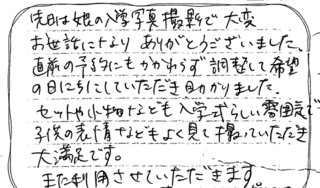 先日は娘の入学写真撮影で大変
お世話になり ありがとうございました。
直前の予約にもかかわらず調整して希望
の日にちにしていただき助かりました。
セットや小物なども入学式らしい雰囲気で
子供の表情などもよく見て撮っていただき
大満足です。
また利用させていただきます。